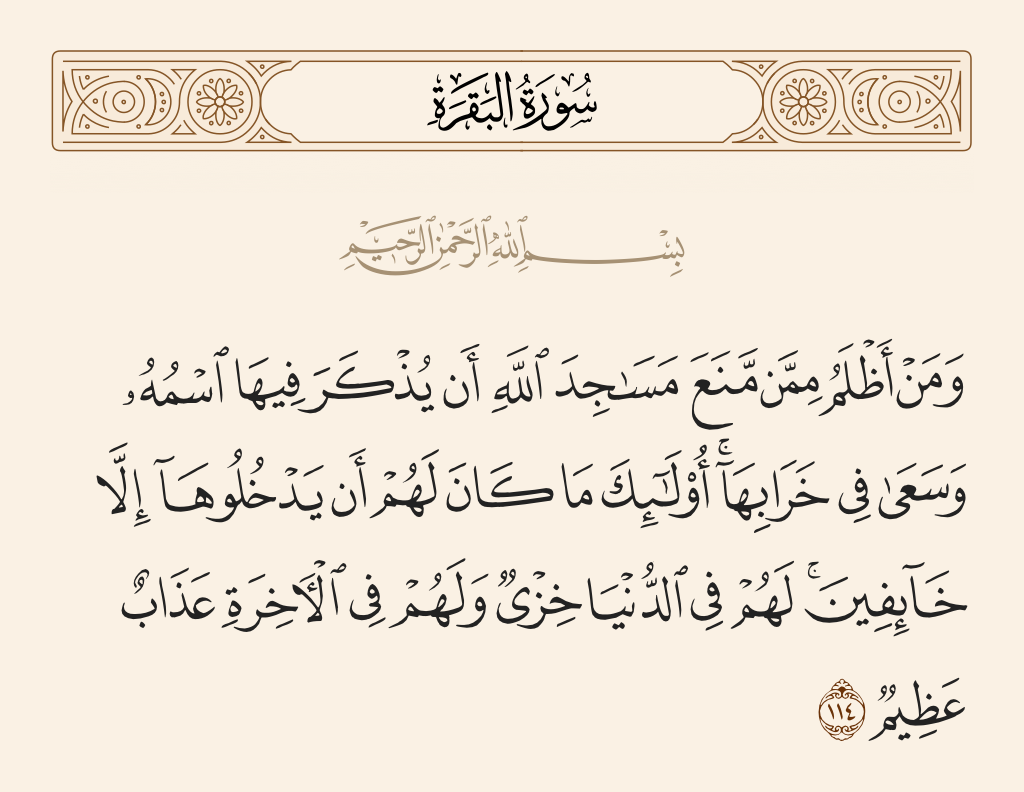 سُورَةُ البَقَرَةِ
بِسْمِ ٱللَّهِ ٱلرَّحْمَٰنِ ٱلرَّحِيمِ
وَمَنْ أَظْلَمُ مِمَّن مَّنَعَ مَسَـٰجِدَ ٱللَّهِ أَن يُذْكَرَ فِيهَا ٱسْمُهُۥ
وَسَعَىٰ فِى خَرَابِهَآ ۚ أُو۟لَـٰٓئِكَ مَا كَانَ لَهُمْ أَن يَدْخُلُوهَآ إِلَّا
خَآئِفِينَ ۚ لَهُمْ فِى ٱلدُّنْيَا خِزْىٌ وَلَهُمْ فِى ٱلْـَٔاخِرَةِ عَذَابٌ
عَظِيمٌ ١١٤